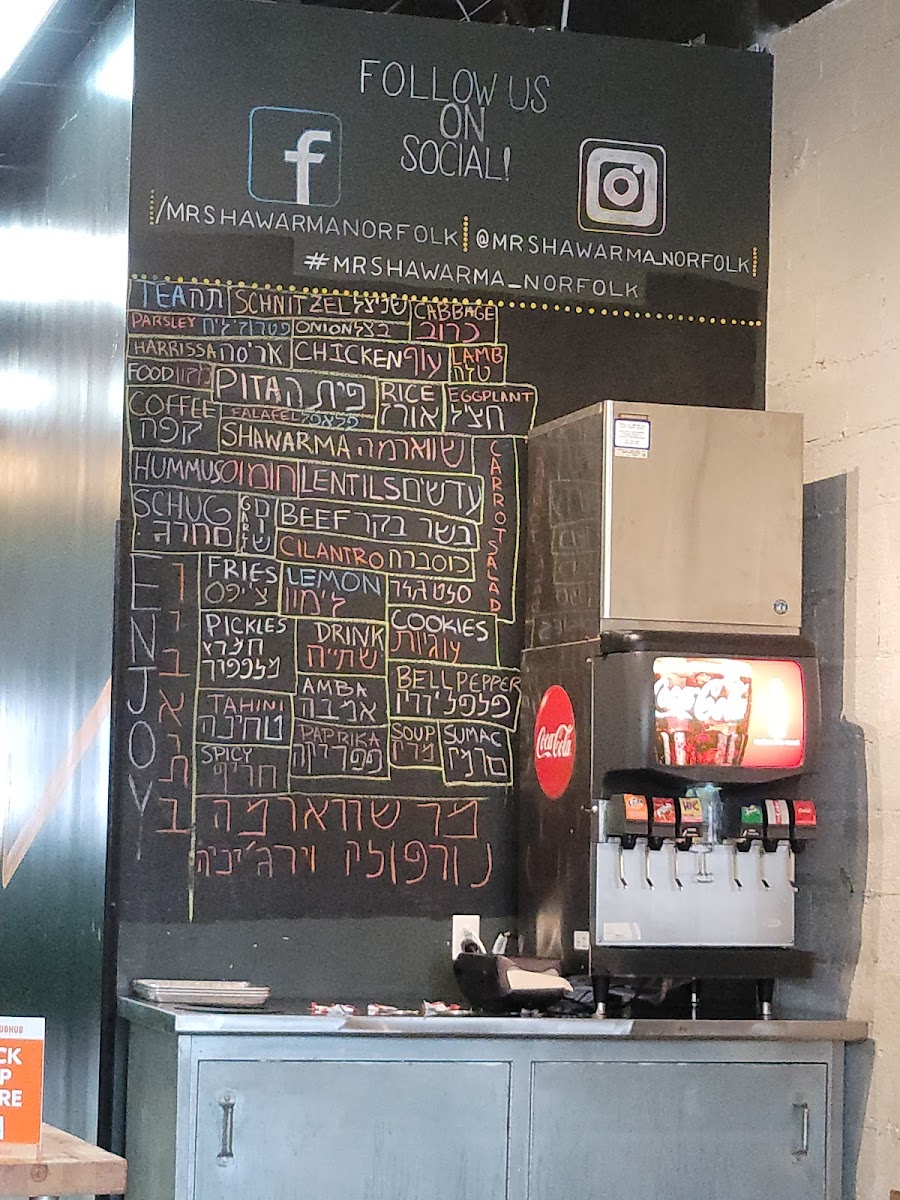 FOLLOW US
ON
SOCIAL!
f
/MRSHAWARMANORFOLK
@MRSHAWARMA_NORFOLK
#MRSHAWARMA_NORFOLK
TEA תה
SCHNITZEL שניצל
CABBAGE
כרוב
PARSLEY
ONION בצל
HARRISSA אריסה
CHICKEN עוף
LAMB
טלה
FOOD מזון
PITA פיתה
RICE
אורז
EGGPLANT
חציל
COFFEE
קפה
FALAFEL פלאפל
SHAWARMA שווארמה
HUMMUS חומוס
LENTILS עדשים
CARROT SALAD
SCHUG
סחרג
שום
BEEF בשר בקר
CILANTRO כוסברה
FRIES
צ'יפס
LEMON
לימון
סלט גזר
PICKLES
חמוץ
מלפפון
DRINK
שתייה
COOKIES
עוגיות
TAHINI
טחינה
AMBA
אמבה
BELL PEPPER
SPICY
חריף
PAPRIKA
פפריקה
SOUP
מרק
SUMAC
ENJOY
מר שווארמה
נורפולק וירג'יניה
Coca-Cola
Coca-Cola